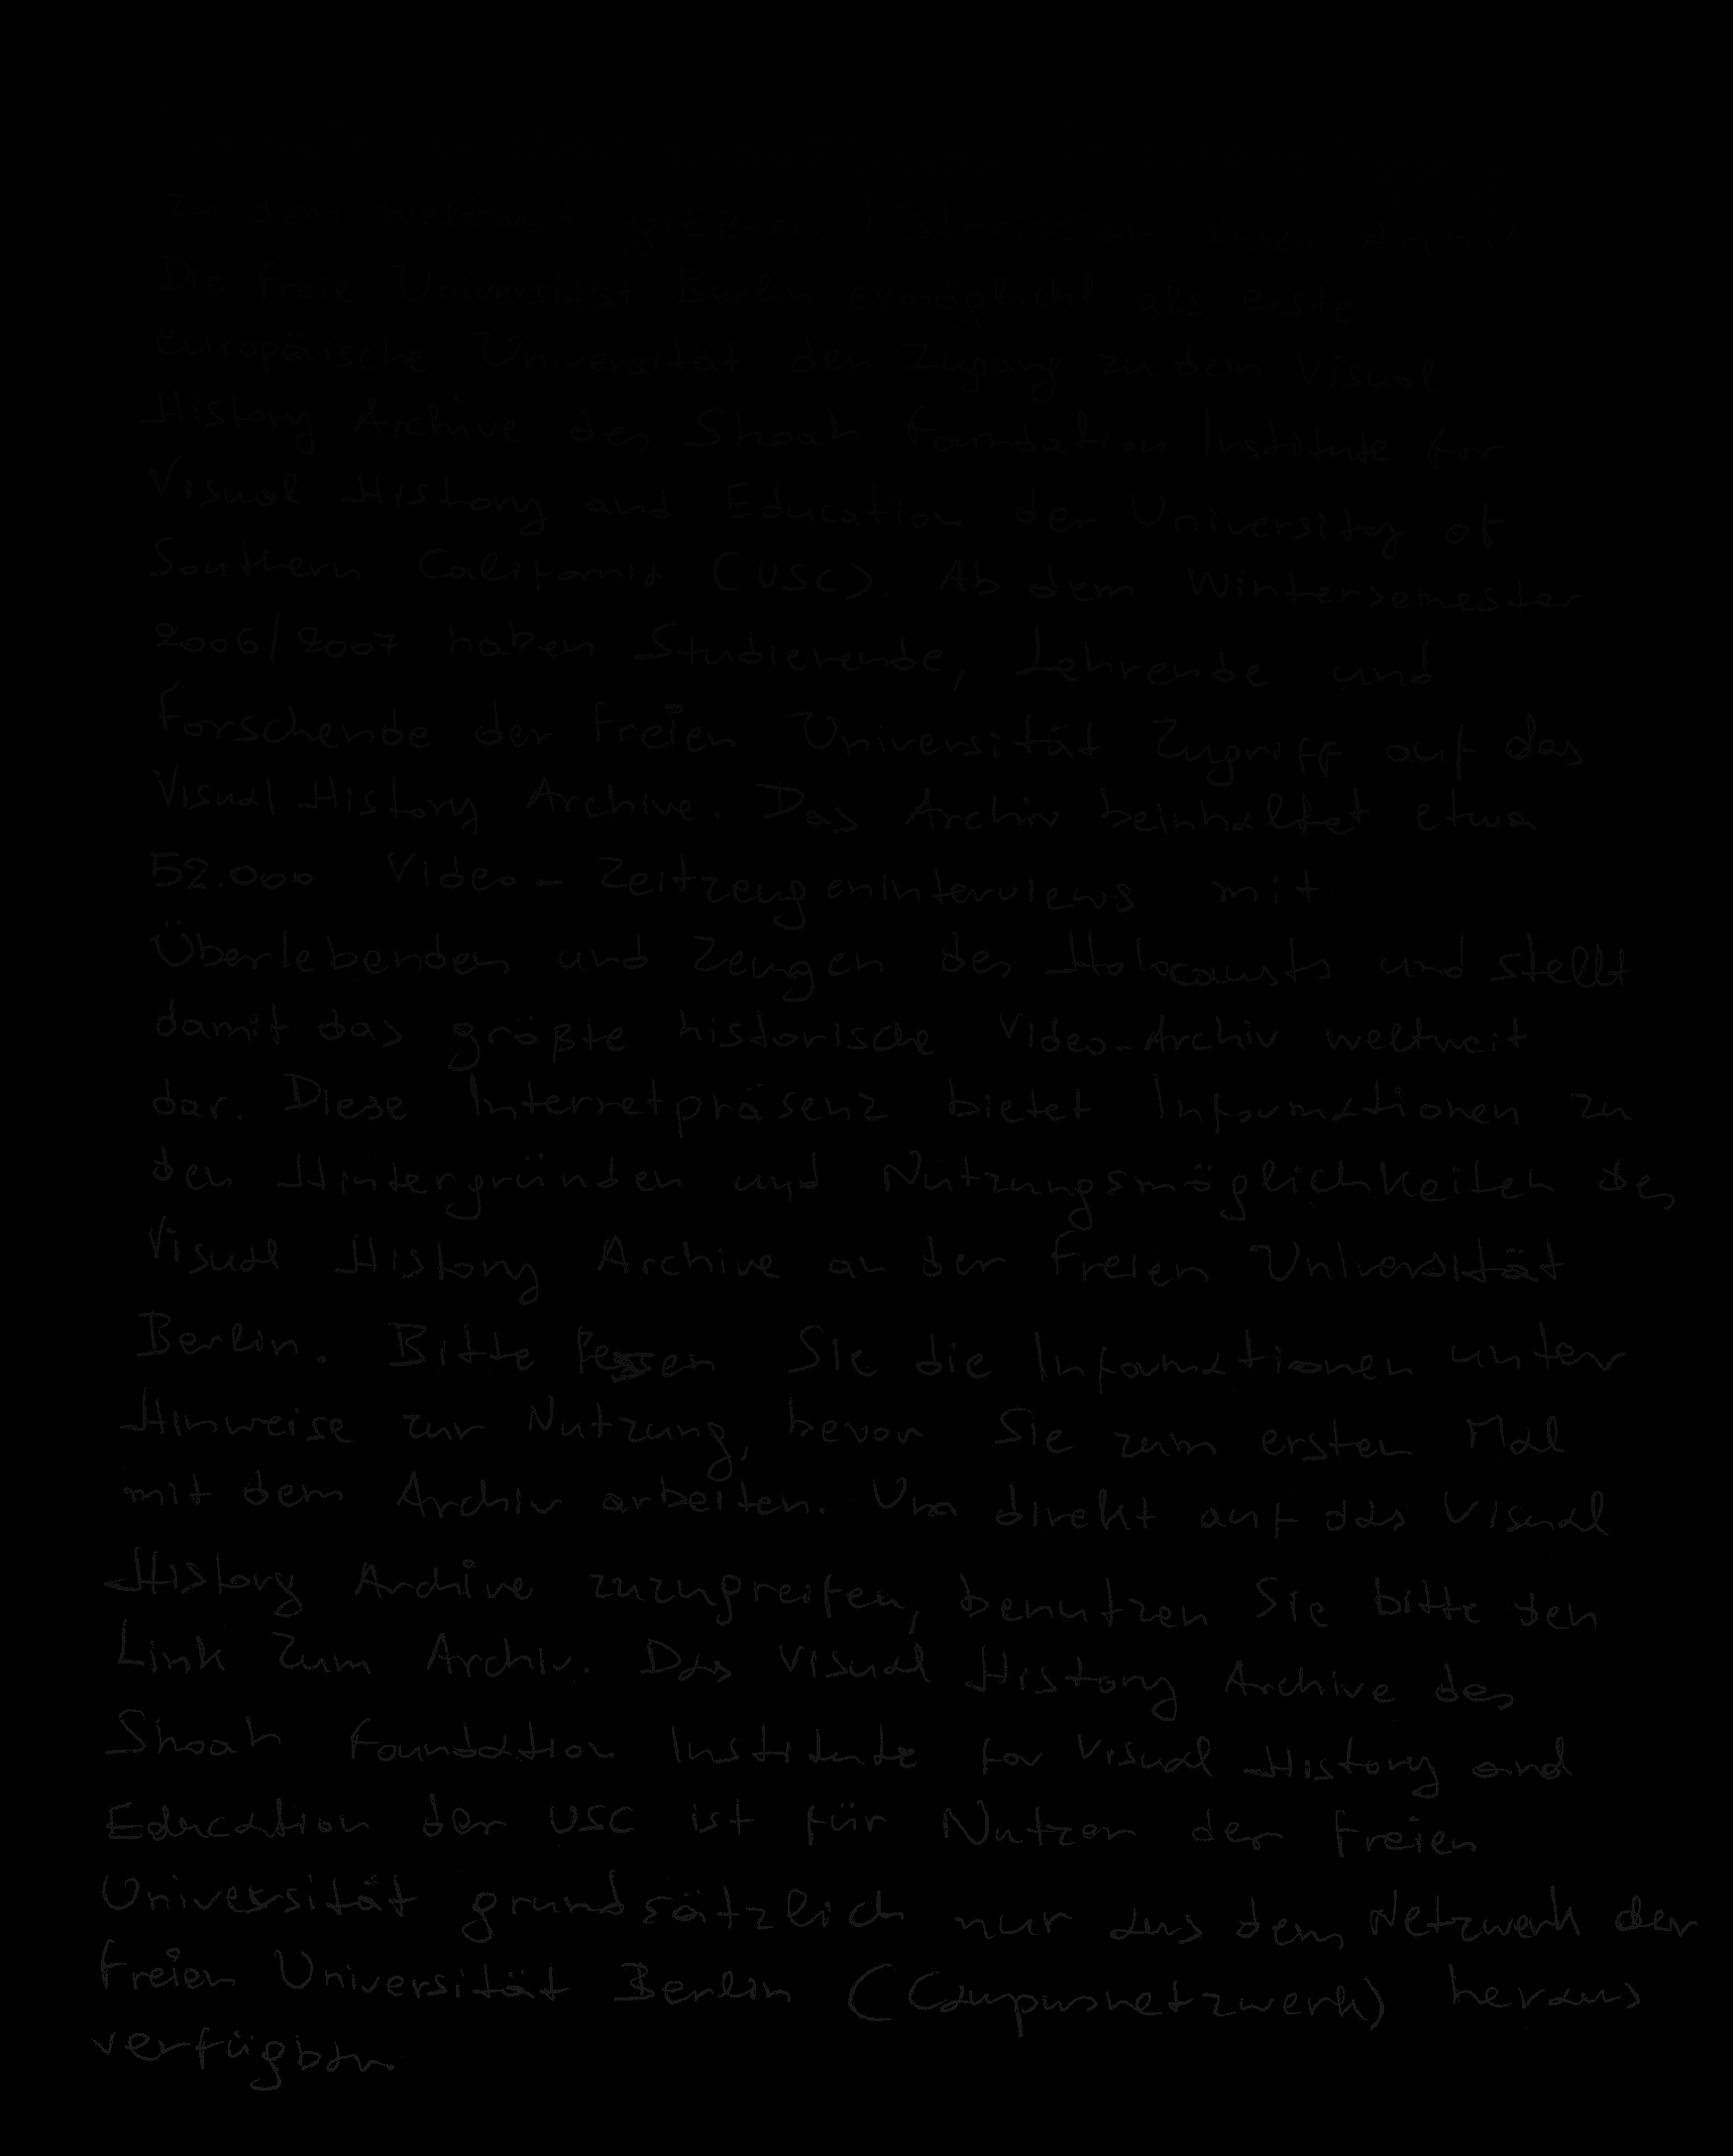 zu dem weltweit größten historischen Video-Archiv.
Die Freie Universität Berlin ermöglicht als erste
europäische Universität den Zugang zu dem Visual
History Archive des Shoah Foundation Institute for
Visual History and Education der University of
Southern California (USC). Ab dem Wintersemester
2006/2007 haben Studierende, Lehrende und
Forschende der Freien Universität Zugriff auf das
Visual History Archive. Das Archiv beinhaltet etwa
52.000 Video-Zeitzeugeninterviews mit
Überlebenden und Zeugen des Holocausts und stellt
damit das größte historische Video-Archiv weltweit
dar. Diese Internetpräsenz bietet Informationen zu
den Hintergründen und Nutzungsmöglichkeiten des
Visual History Archive an der Freien Universität
Berlin. Bitte lessen Sie die Informationen unter
Hinweise zur Nutzung, bevor Sie zum ersten Mal
mit dem Archiv arbeiten. Um direkt auf das Visual
History Archive zuzugreifen, benutzen Sie bitte den
Link zum Archiv. Das Visual History Archive des
Shoah Foundation Institute for Visual History and
Education der USC ist für Nutzer der Freien
Universität grundsätzlich nur aus dem Netzwerk der
Freien Universität Berlin (Campusnetzwerk) heraus
verfügbar.